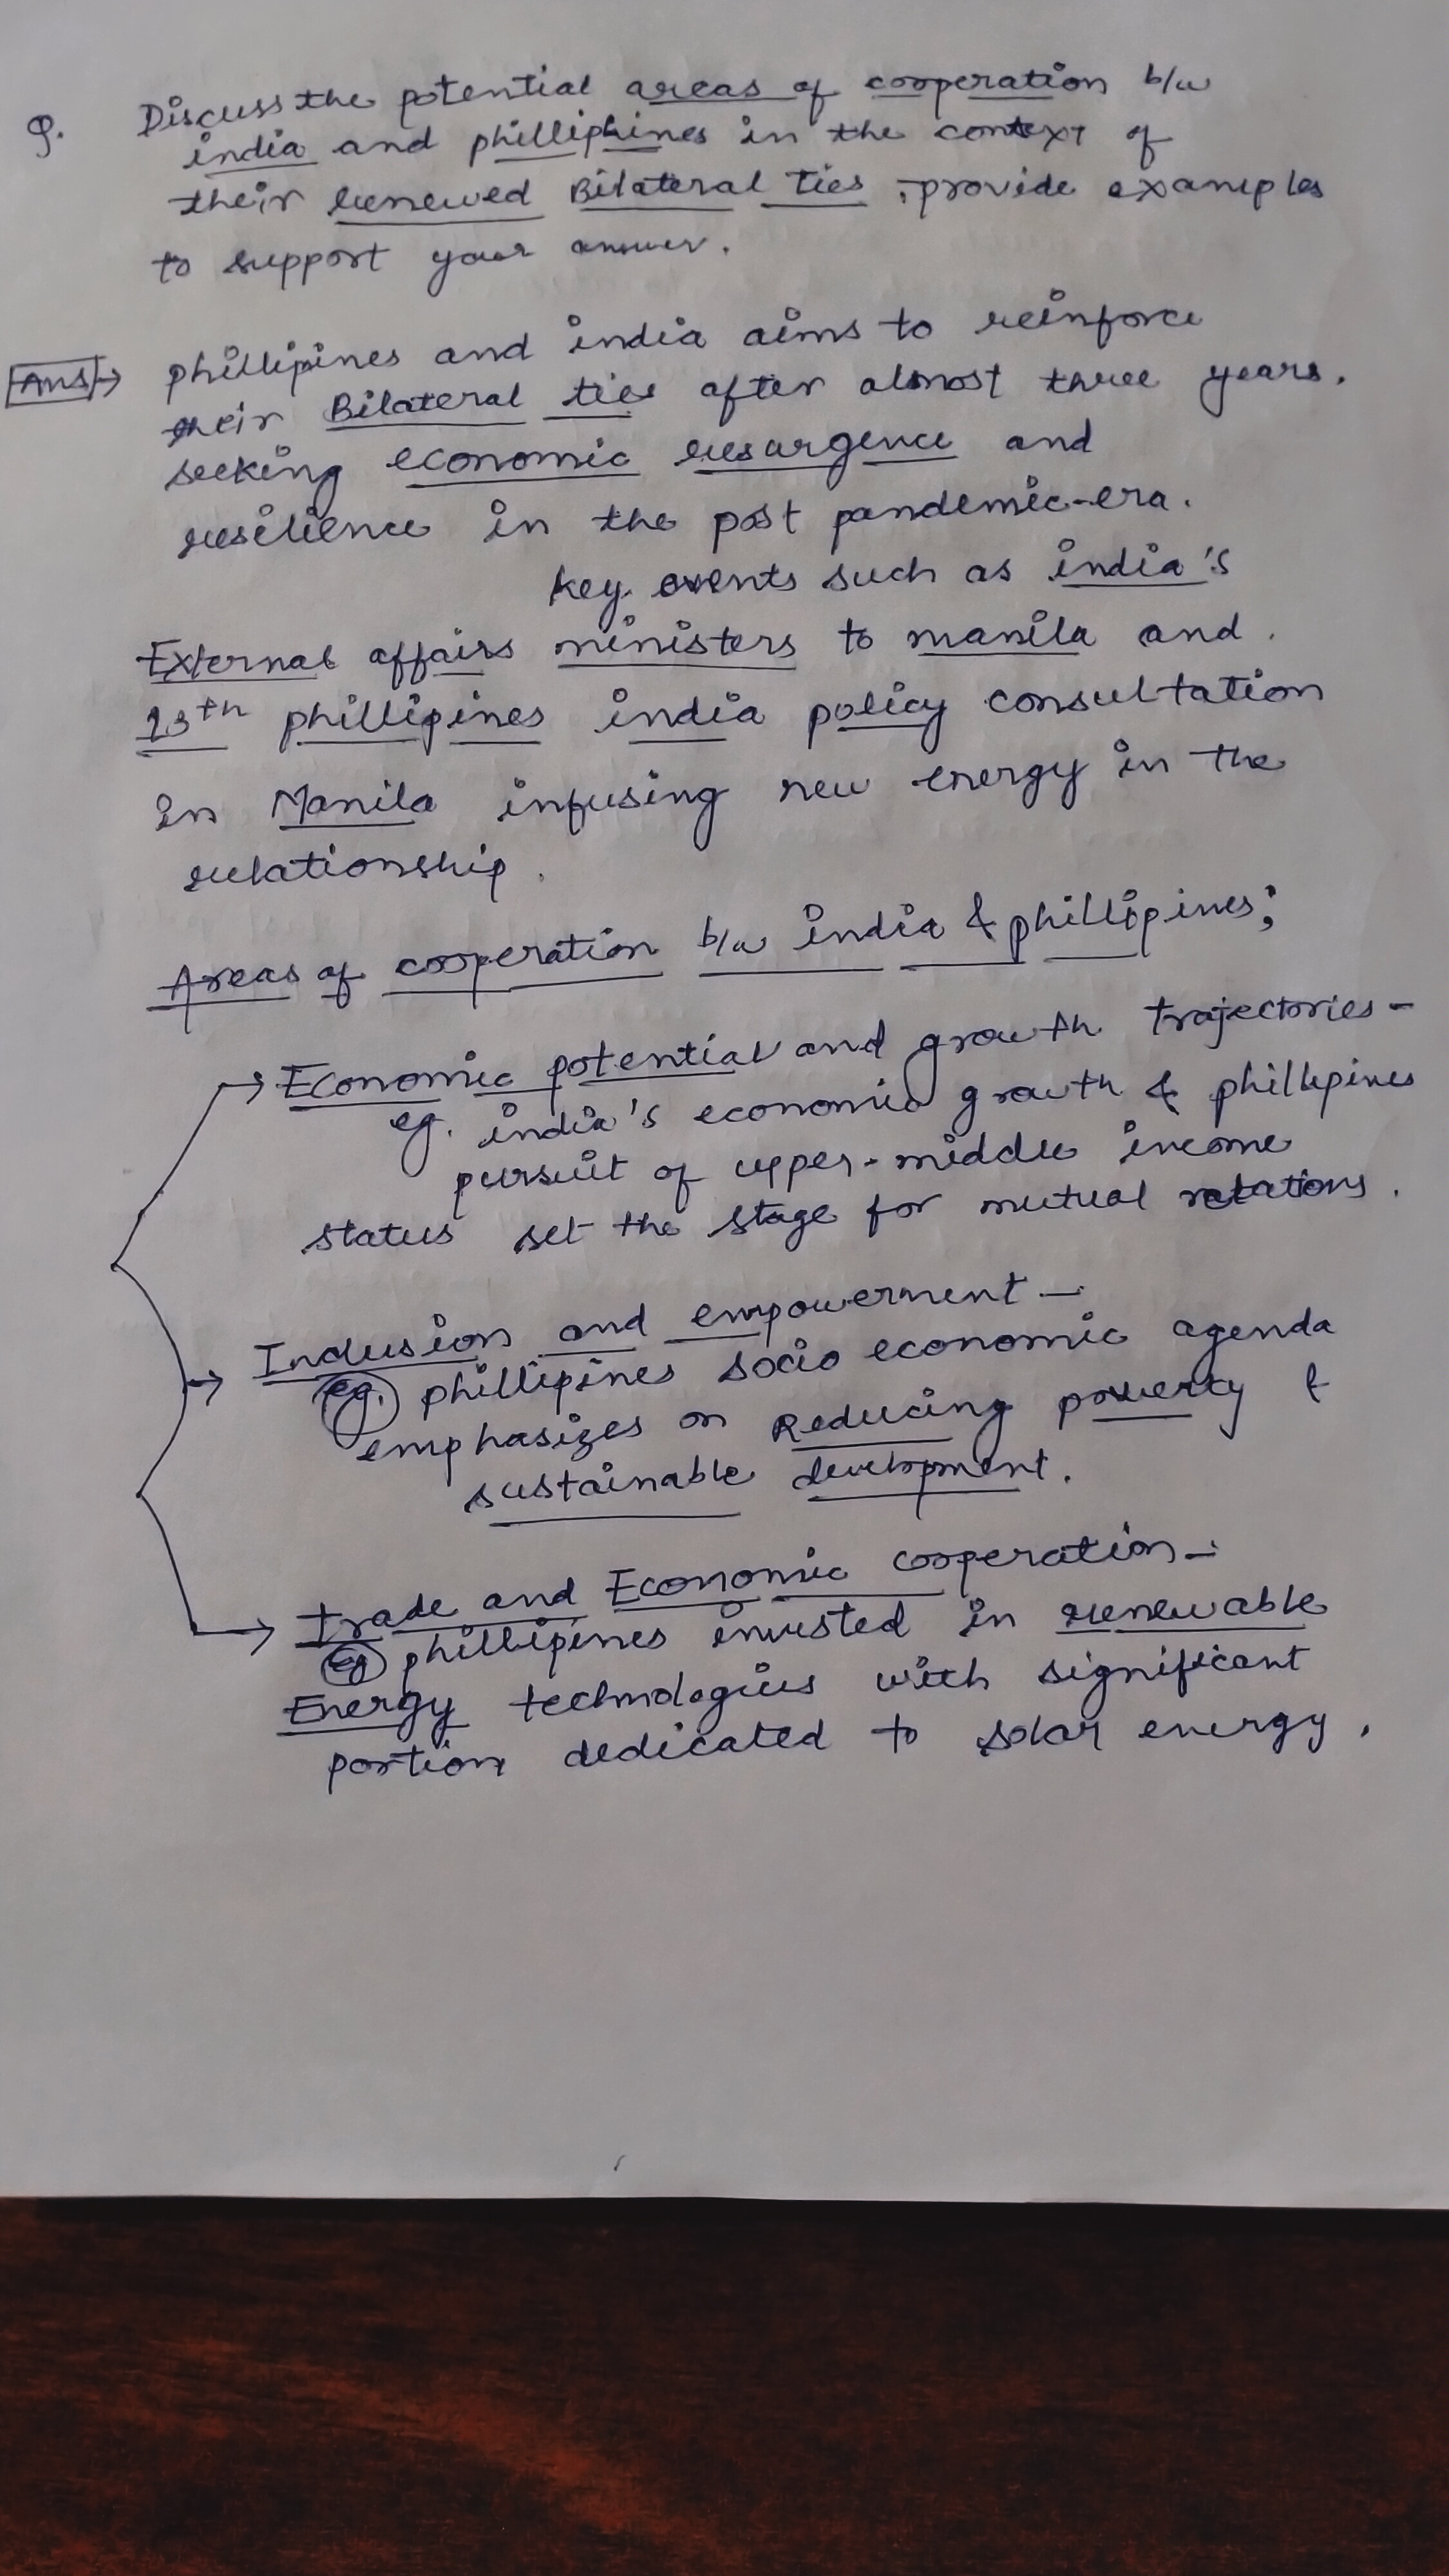 Q. Discuss the potential areas of cooperation b/w
india and philliphines in the context of
their renewed Bilateral ties, provide examples
to support your answer.
Ans→ phillipines and india aims to reinforce
their Bilateral ties after almost three years.
seeking economic resurgence and
resilience in the post pandemic-era.
key events such as india's
External affairs ministers to manila and
13th phillipines india policy consultation
in Manila infusing new energy in the
relationship.
Areas of cooperation b/w india & phillipines;
→ Economic potential and growth trajectories-
eg. india's economic growth & phillipines
pursuit of upper-middle income
status set the stage for mutual relations.
→ Inclusion and empowerment –
eg. phillipines socio economic agenda
emphasizes on Reducing poverty &
sustainable development.
→ trade and Economic cooperation-
eg phillipines invested in renewable
Energy technologies with significant
portion dedicated to solar energy.